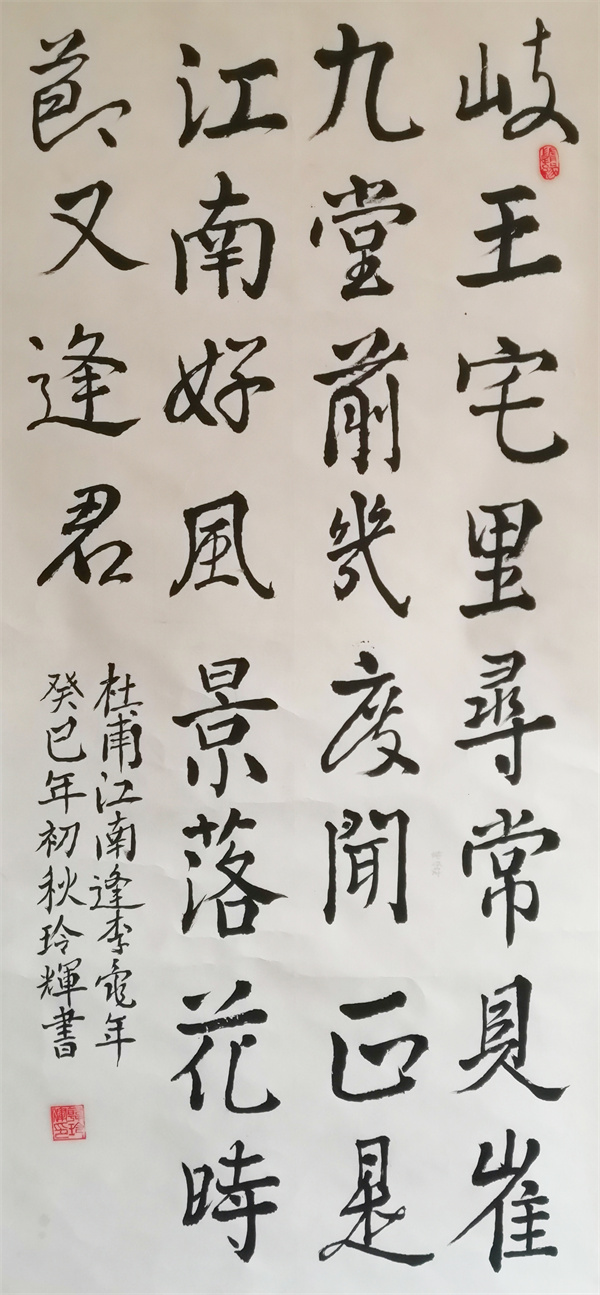 岐王宅里尋常見崔
九堂前幾度聞正是
江南好風景落花時
節又逢君
杜甫江南逢李龜年
癸巳年初秋玲輝書